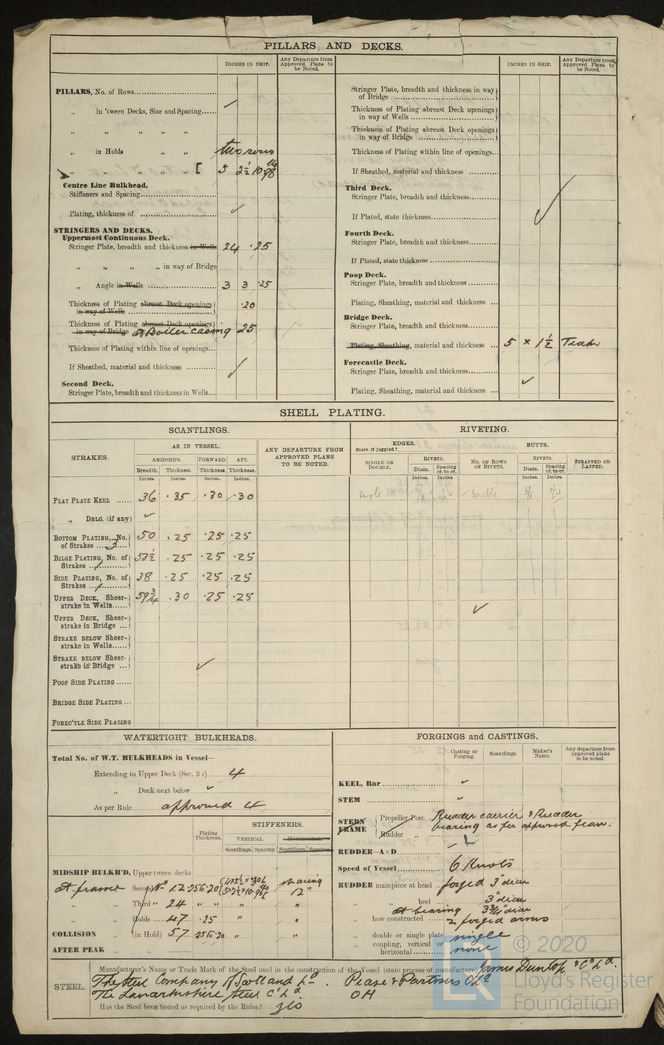 PILLARS AND DECKS.
INCHES IN SHIP.
Any Departure from Approved Plans to be Noted.
PILLARS, No. of Rows
„ in 'tween Decks, Size and Spacing
„ „ „ „
„ in Holds „ „ two rows
„ „ „ „ [ 5 2½
Centre Line Bulkhead.
Stiffeners and Spacing
Plating, thickness of
STRINGERS AND DECKS.
Uppermost Continuous Deck.
Stringer Plate, breadth and thickness in Wells 24 .25
„ „ „ „ in way of Bridge
„ Angle in Wells 3 3 .25
Thickness of Plating abreast Deck openings in way of Wells .20
Thickness of Plating abreast Deck openings in way of Bridge at Boiler casing .25
Thickness of Plating within line of openings
If Sheathed, material and thickness
Second Deck.
Stringer Plate, breadth and thickness in Wells
INCHES IN SHIP.
Any Departure from Approved Plans to be Noted.
Stringer Plate, breadth and thickness in way of Bridge
Thickness of Plating abreast Deck openings in way of Wells
Thickness of Plating abreast Deck openings in way of Bridge
Thickness of Plating within line of openings
If Sheathed, material and thickness
Third Deck.
Stringer Plate, breadth and thickness
If Plated, state thickness
Fourth Deck.
Stringer Plate, breadth and thickness
If Plated, state thickness
Poop Deck.
Stringer Plate, breadth and thickness
Plating, Sheathing, material and thickness
Bridge Deck.
Stringer Plate, breadth and thickness
Plating, Sheathing, material and thickness 5 × 1½ Teak
Forecastle Deck.
Stringer Plate, breadth and thickness
Plating, Sheathing, material and thickness
SHELL PLATING.
SCANTLINGS.
RIVETING.
STRAKES.
AS IN VESSEL.
AMIDSHIPS. FORWARD. AFT.
Breadth. Thickness. Thickness. Thickness.
Inches. Inches. Inches. Inches.
ANY DEPARTURE FROM APPROVED PLANS TO BE NOTED.
EDGES.
State if joggled?
SINGLE OR DOUBLE.
RIVETS.
Diam. Spacing cr. to cr.
BUTTS.
NO. OF ROWS OF RIVETS.
RIVETS.
Diam. Spacing cr. to cr.
STRAPPED OR LAPPED.
FLAT PLATE KEEL 36 .35 .30 .30
„ DBLG. (if any)
BOTTOM PLATING, No. of Strakes 3 50 .25 .25 .25
BILGE PLATING, No. of Strakes 1 .25 .25 .25
SIDE PLATING, No. of Strakes 1 38 .25 .25 .25
UPPER DECK, Sheerstrake in Wells 59¾ .30 .25 .25
UPPER DECK, Sheerstrake in Bridge
STRAKE BELOW Sheerstrake in Wells
STRAKE BELOW Sheerstrake in Bridge
POOP SIDE PLATING
BRIDGE SIDE PLATING
FOREC'TLE SIDE PLATING
WATERTIGHT BULKHEADS.
Total No. of W.T. BULKHEADS in Vessel—
Extending to Upper Deck 4
„ Deck next below
As per Rule approved 4
Plating Thickness.
STIFFENERS.
VERTICAL
Scantlings. Spacing. Scantlings. Spacing.
MIDSHIP BULK'D, Upper 'tween decks
at frames Second No 12 spacing 12"
„ Third „ 24 „ „
„ Holds „ 47 .25 „ „
COLLISION „ (in Hold) 57 „ „
AFTER PEAK
FORGINGS and CASTINGS.
Casting or Forging.
Scantlings.
Maker's Name.
Any departure from approved plans to be noted.
KEEL, Bar
STEM
STERN FRAME
Propeller Post. Rudder carrier & Rudder
Rudder „ bearing as per approved plan.
RUDDER—A×D
Speed of Vessel 6 Knots
RUDDER mainpiece at head forged 3" diar
„ heel 3" diar
at bearing 3¾" diar
„ how constructed 2 forged arms
„ double or single plate single
„ coupling, vertical or horizontal none
STEEL.
Manufacturer's Name or Trade Mark of the Steel used in the construction of the Vessel (state process of manufacture) James Dunlop & Co Ld.
The Steel Company of Scotland Ld. Pease & Partners Ld
The Lanarkshire Steel Co Ld OH
Has the Steel been tested as required by the Rules? Yes
© 2020
Lloyd's Register
Foundation